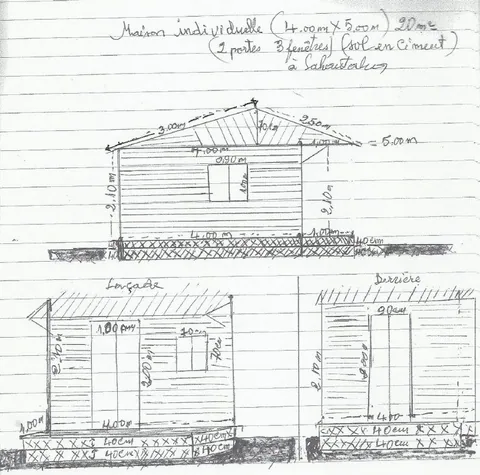 Maison individuelle (4.00m X 5.00m) 20m²
(2 portes 3 fenêtres) (sol en ciment)
à
3.00m
2.50m
70cm
1.00m
= 5.00m
4.00m
0.90m
2.10m
2.10m
4.00m
1.00m
40cm
Façade
Derrière
1,00m
70cm
70cm
2.10m
2.00m
4.00m
40cm
40cm
40cm
40cm
90cm
2.10m
2.00m
4.00
40cm
40cm